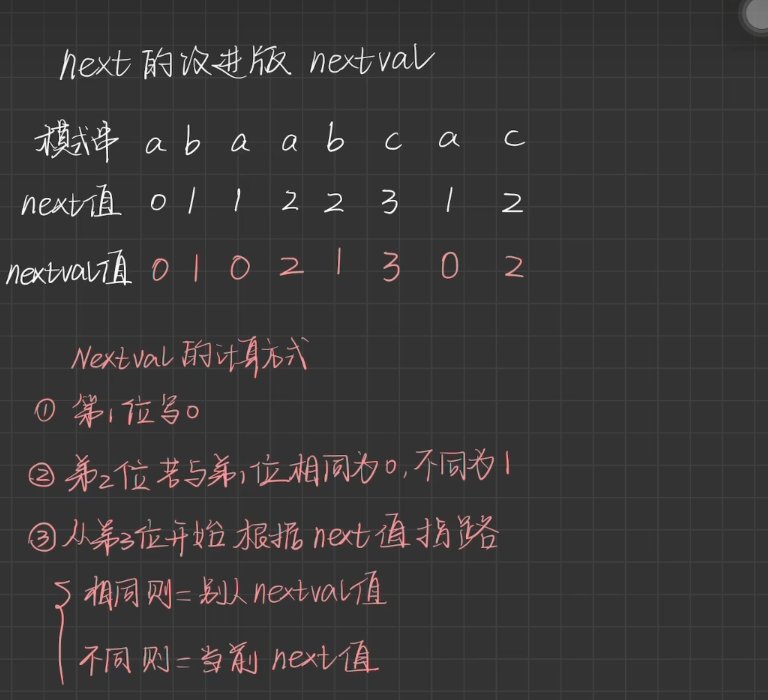 next 的改进版 nextval
模式串 a b a a b c a c
next值 0 1 1 2 2 3 1 2
nextval值 0 1 0 2 1 3 0 2
Nextval 的计算方式
① 第1位写0
② 第2位若与第1位相同为0,不同为1
③ 从第3位开始 根据 next值指路
相同则=别人nextval值
不同则=当前 next值